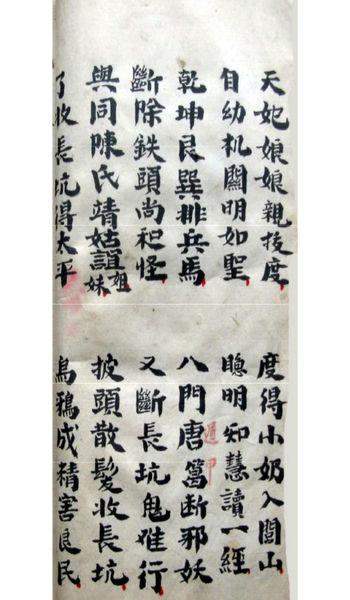 天妃娘娘親技度
度得小奶入閭山
自幼机關明如聖
聰明知慧讀一經
乾坤艮巽排兵馬
八門唐篙断邪妖
遁甲
斷除鉄頭尚和怪
又斷長坑鬼难行
與同陳氏靖姑誼姐妹
披頭散髮收長坑
了收長坑得太平
鳥鴉成精害良民